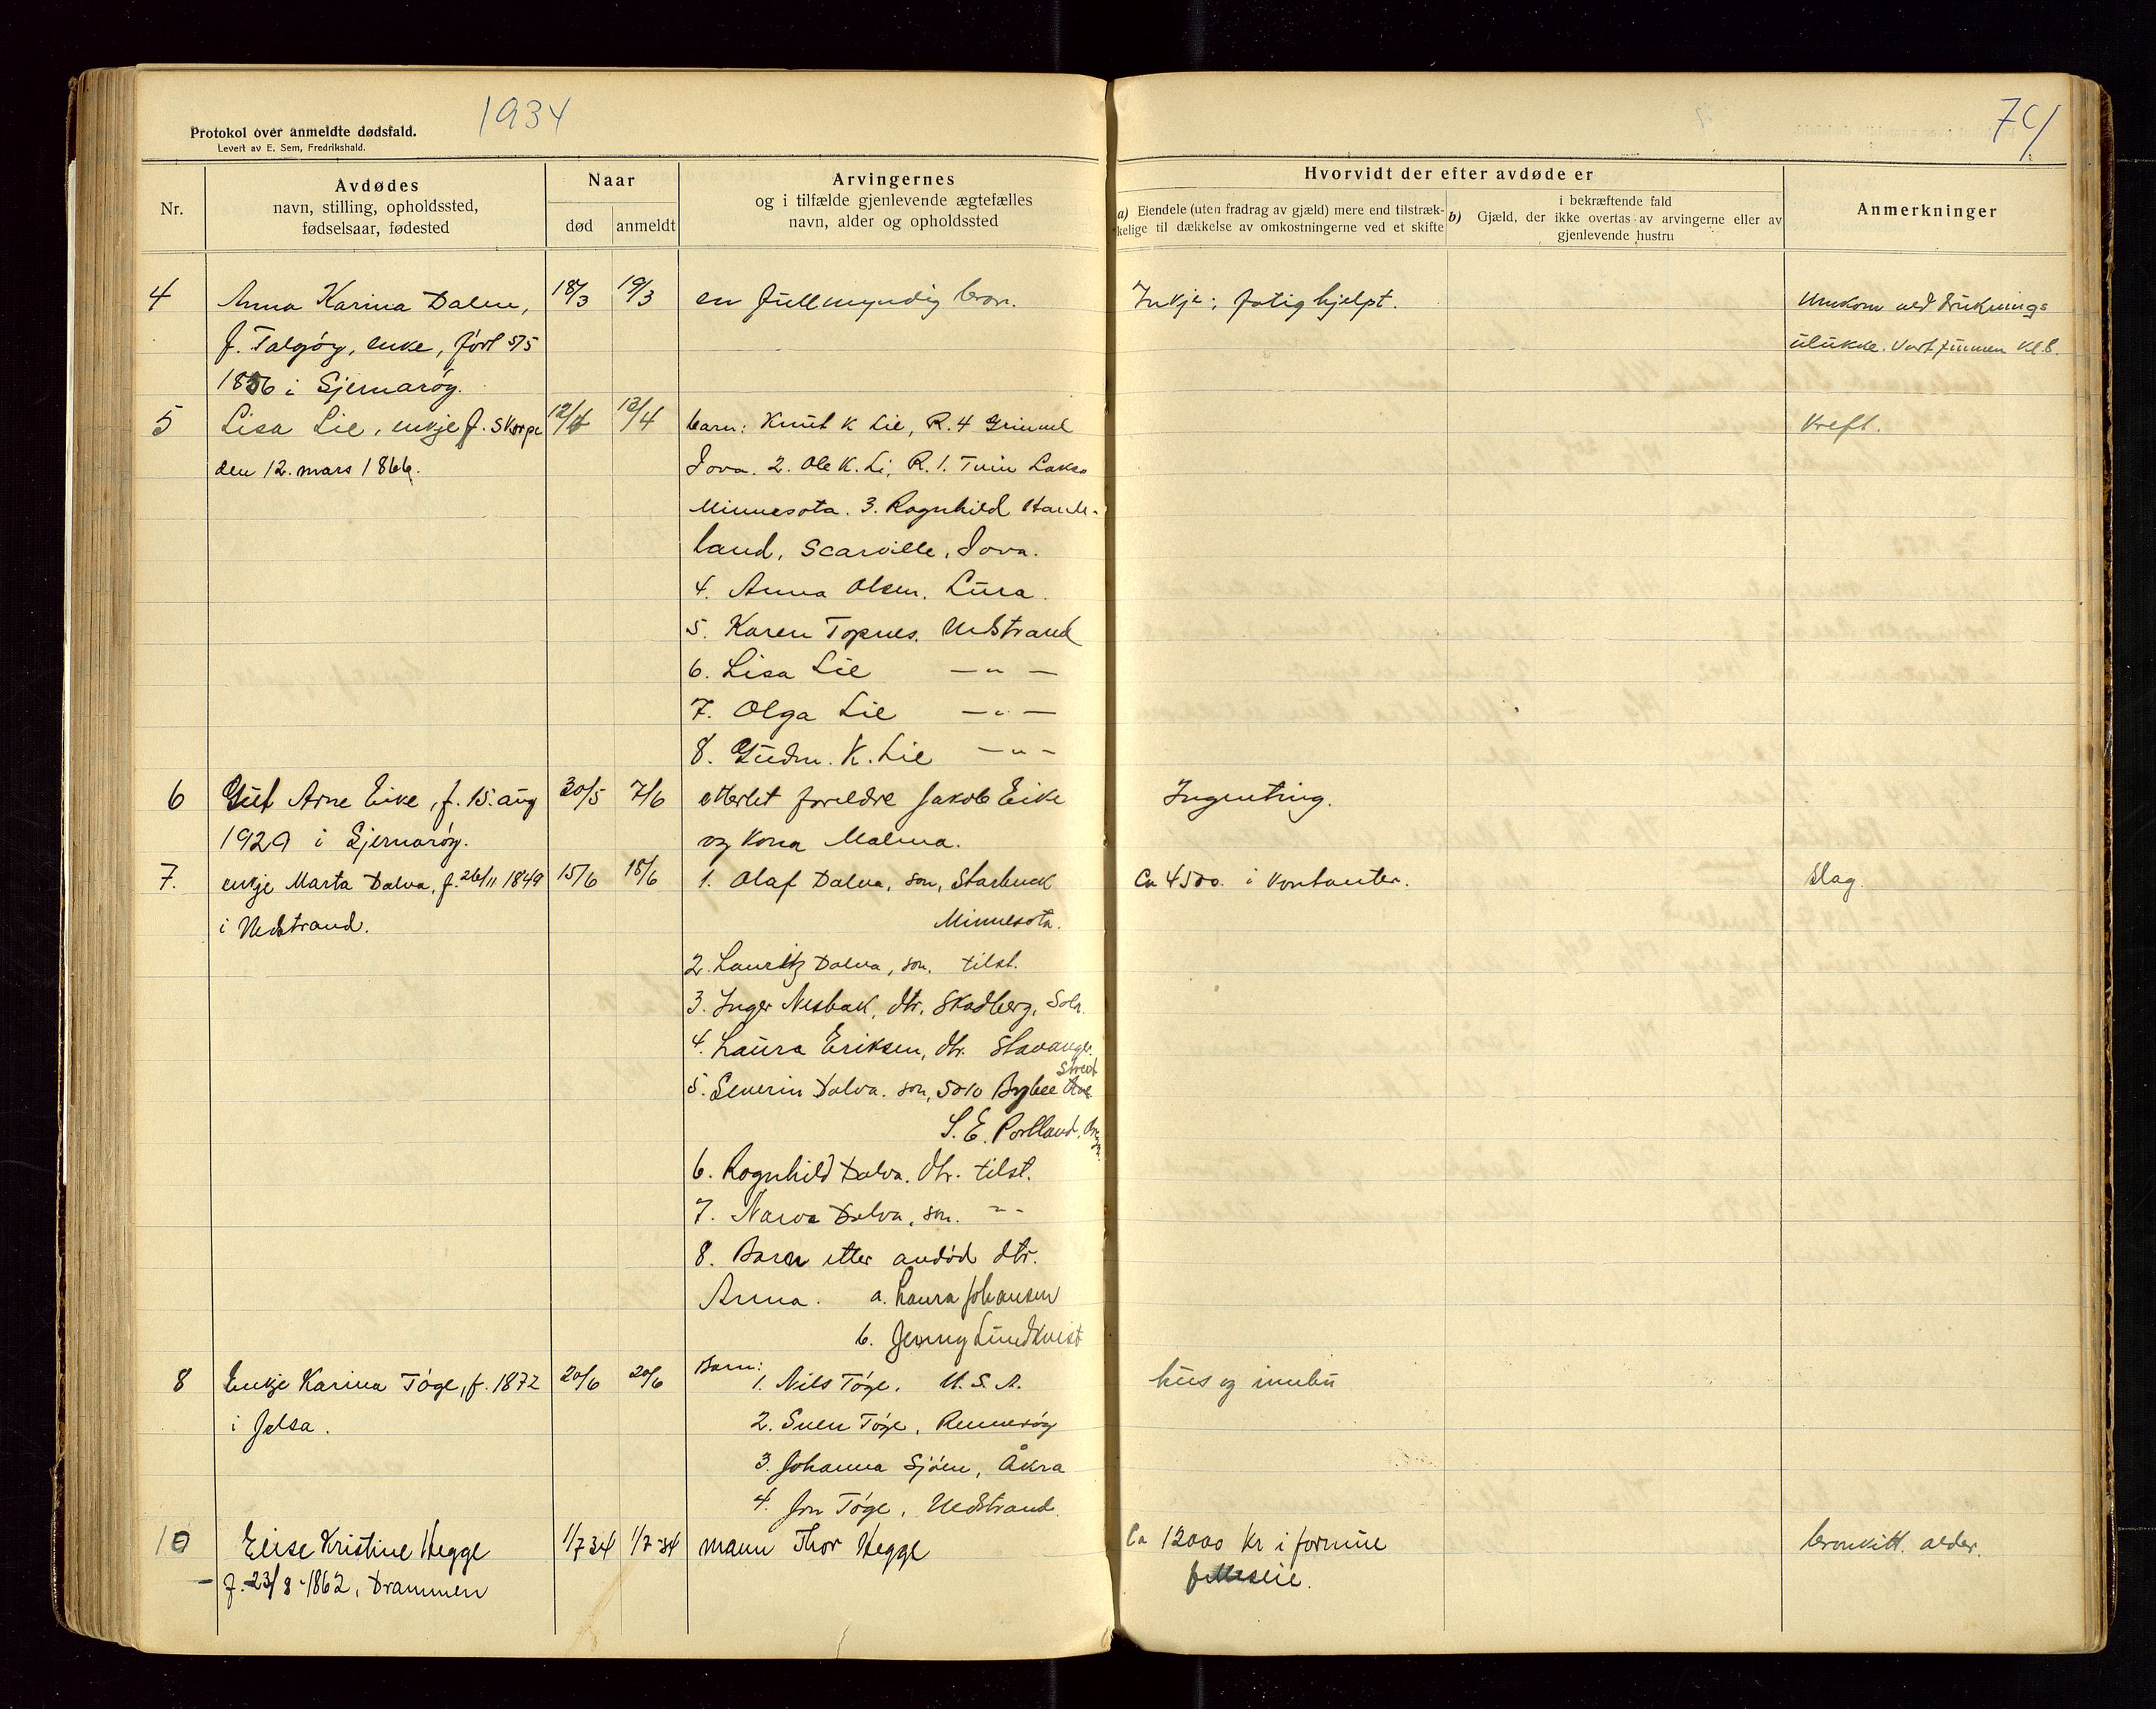 Protokol over anmeldte dødsfald.
Levert av E. Sem, Fredrikshald.
1934
Nr.
Avdødes
navn, stilling, opholdssted,
fødselsaar, fødested
Naar
død
anmeldt
Arvingernes
og i tilfælde gjenlevende ægtefælles
navn, alder og opholdssted
Hvorvidt der efter avdøde er
a) Eiendele (uten fradrag av gjæld) mere end tilstræk-
kelige til dækkelse av omkostningerne ved et skifte
i bekræftende fald
b) Gjæld, der ikke overtas av arvingerne eller av
gjenlevende hustru
Anmerkninger
4 Anna Karina Dalen, 18/3 19/3 en fullmyndig bror. Inkje; fatighjelpt. Umkom ved druknings
f. Talgøy, enke, født 5/5 ulukke. Vart funnen kl. 8.
1856 i Sjernarøy.
5 Lisa Lie, enkje f. Skorpe 12/4 12/4 barn: Knut K Lie, R. 4 Kreft.
den 12. mars 1866. Iova. 2. Ole K. Li, R. 1. Tvin
Minnesota. 3. Ragnhild
land, Scarville, Iova.
4. Anna Olsen. Lura.
5. Karen Topnes. Nedstrand
6. Lisa Lie — " —
7. Olga Lie — " —
8. Gudm. K. Lie — " —
6 Arne Eike, f. 15. aug 30/5 7/6 etterlet foreldre Jakob Eike Ingenting.
1929 i Sjernarøy. og kona Malena.
7. enkje Marta Dalva, f. 26/11 1849 15/6 18/6 1. Olaf Dalva, son, Starbuck Ca 4500. i kontanter. Slag.
i Nedstrand. Minnesota.
2. Lauritz Dalva, son. tilst.
3. Inger Nesbak, dtr. Skadberg, Sola.
4. Laura Eriksen, dtr. Stavanger.
Street
5. Severin Dalva. son, 5010 Bybee Ave
S. E. Portland,
6. Ragnhild Dalva. dtr. tilst.
7. Dalva, son. - " -
8. Barn etter avdød dtr.
Anna. a. Laura Johansen
b. Jenny Lundkvist
8 Enkje Karina Tøge, f. 1872 20/6 20/6 Barn: 1. Nils Tøge. U. S. A. hus og innbu
i Jelsa. 2. Sven Tøge, Rennesøy
3. Johanna Sjøen, Åkra
4. Jon Tøge, Nedstrand.
10 Elise Kristine Hegge 1/7 34 1/7-34 mann Thor Hegge Ca 12000 kr i formue bronkitt. alder.
f. 23/8-1862, Drammen felleseie.